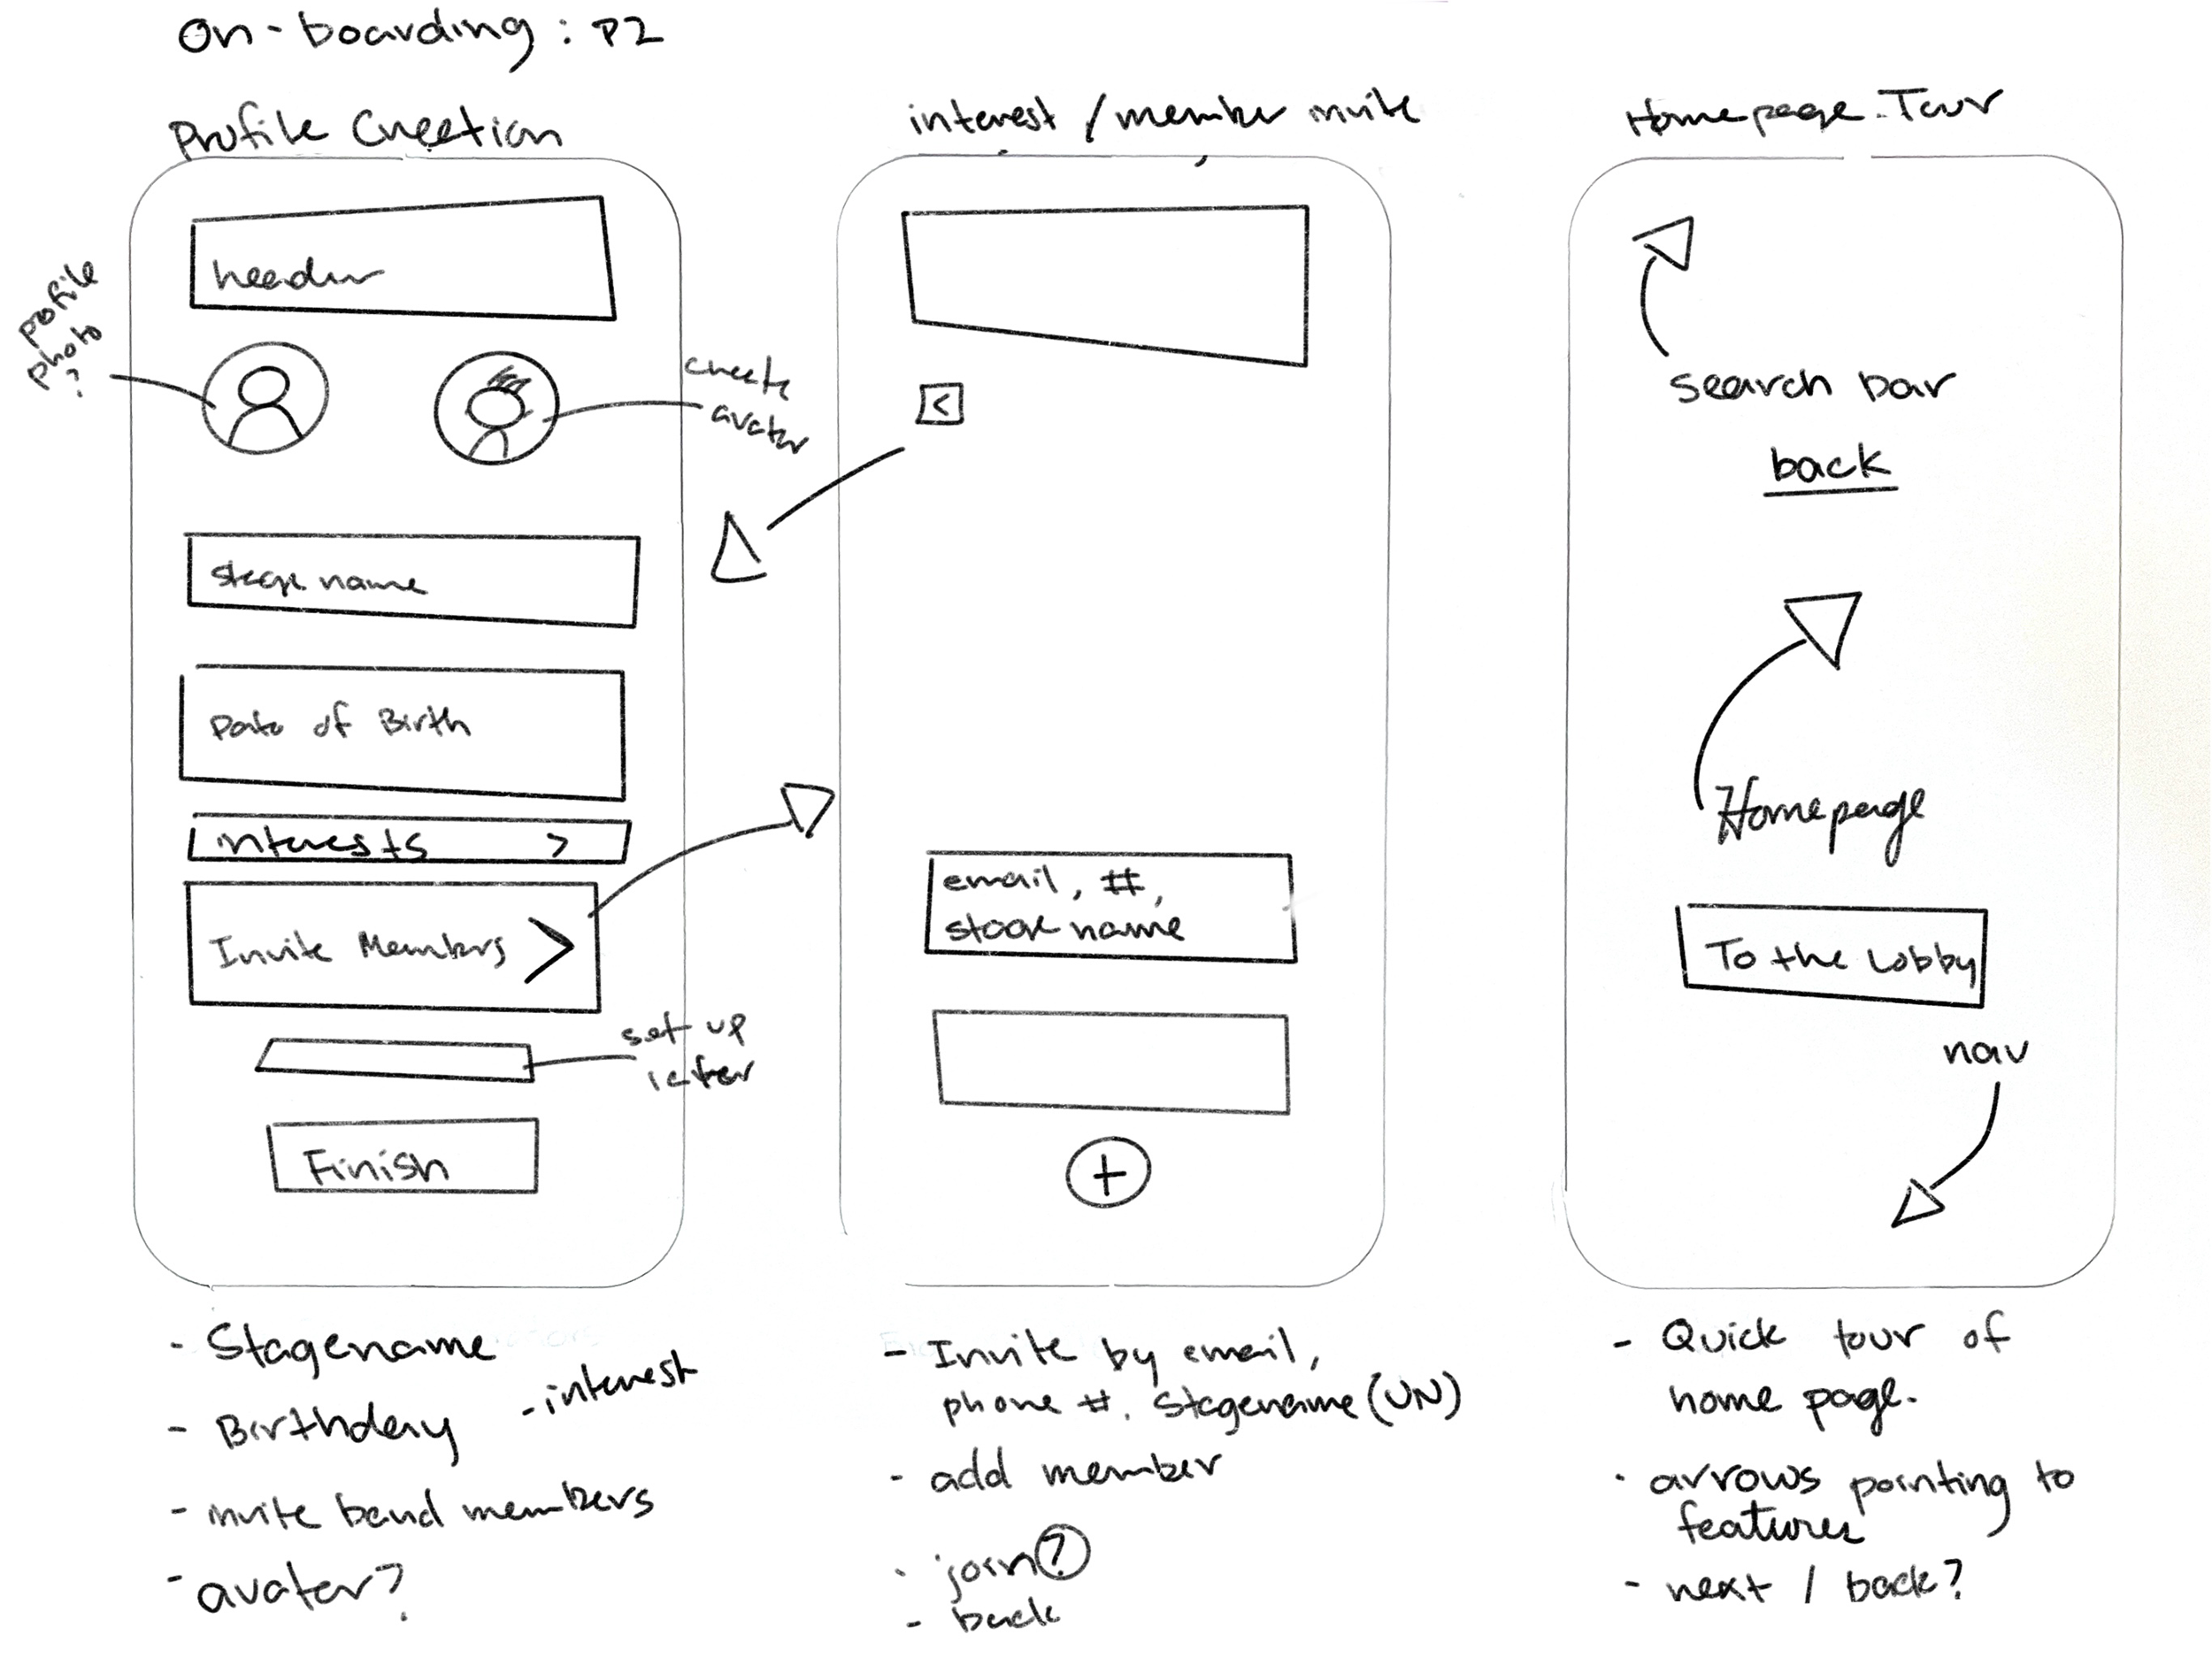 On-boarding: P2
Profile Creation
header
profile
photo
?
create
avatar
stage name
Date of Birth
interests >
Invite Members >
set up
later
Finish
- Stagename
- Birthday
- interest
- invite band members
- avatar?
interest / member invite
<
email, #,
stage name
+
- Invite by email,
phone #, Stagename (UN)
- add member
- join?
- back
Homepage Tour
search bar
back
Homepage
To the Lobby
nav
- Quick tour of
home page.
- arrows pointing to
features
- next / back?